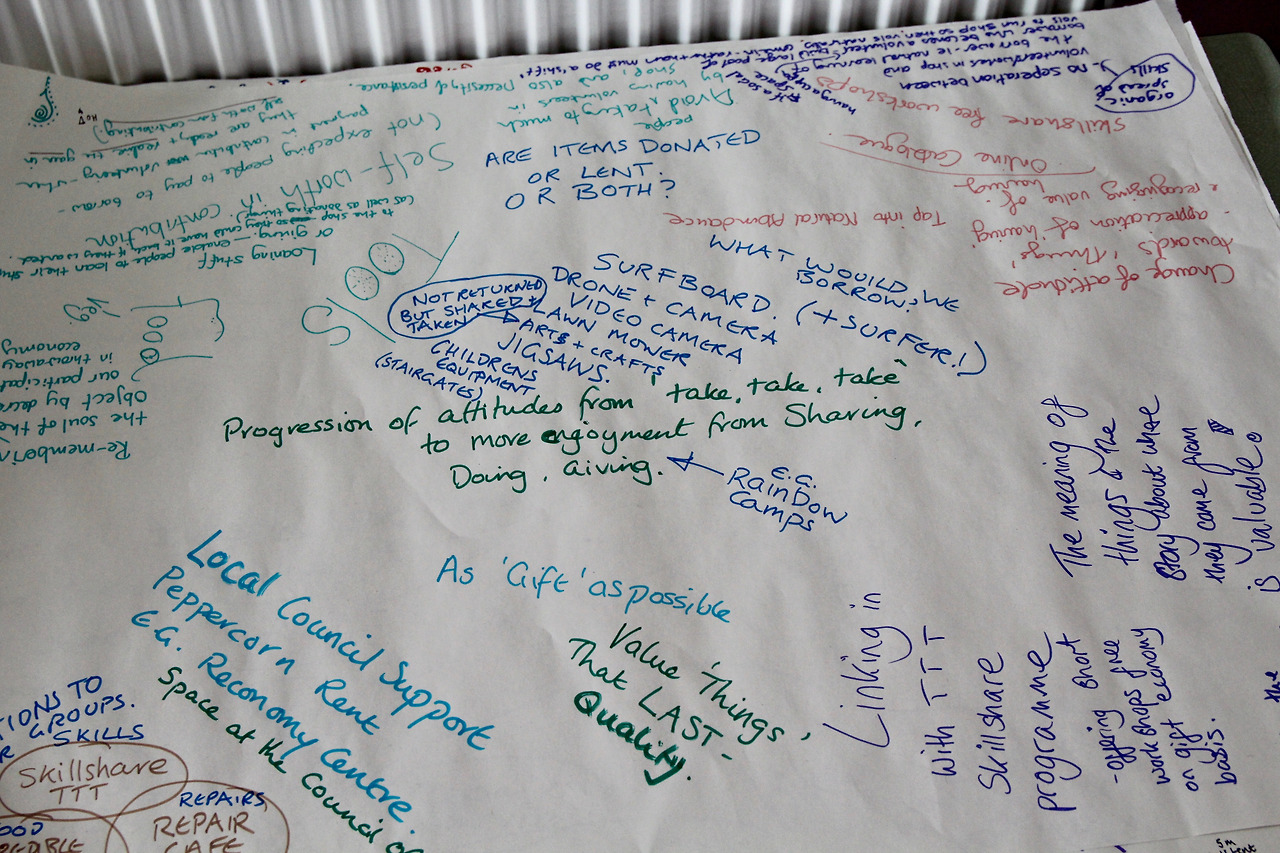 organic
spread of
skills
→ no seperation between
volunteer/roles in shop and
the borrower - ie natural learning of
borrower who becomes a volunteer
Skillshare free workshops
Online Catalogue
Change of attitude
towards 'Things'
- appreciation of having
• recognizing value of
having
Tap into Natural Abundance
Avoid relying to much
people
by having volunteers in
shop, and also necessity of persistance.
Self-worth in
contribution
(not expecting people to pay to borrow -
payment in contribution
they are ready + realise the gain in
self worth from contributing)
Loaning stuff
or giving. — enable people to loan their
to the shop so they could have it back if they wanted.
(as well as donating things)
Re-memberin
the soul of the
object by
our participat
in throwaway
economy
ARE ITEMS DONATED
OR LENT.
OR BOTH?
WHAT WOULD WE
BORROW?
SURFBOARD. (+ SURFER!)
DRONE + CAMERA
VIDEO CAMERA
LAWN MOWER
ARTS + CRAFTS
JIGSAWS.
CHILDRENS
EQUIPMENT
(STAIRGATES)
NOT RETURNED
BUT SHARED +
TAKEN
Progression of attitudes from "take, take, take"
to more enjoyment from Sharing,
Doing, Giving.
E.G.
RAINBOW
Camps
As 'Gift' as possible
Local Council Support
Peppercorn Rent
E.G. Reconomy Centre.
Space at the council
Value 'Things'
That LAST -
Quality.
The meaning of
things & the
story about where
they came from
is valuable.
Linking in
with TTT
Skillshare
programme
- offering short
workshops free
on gift economy
basis.
TIONS TO
GROUPS.
SKILLS
Skillshare
TTT
REPAIRS,
REPAIR
CAFE